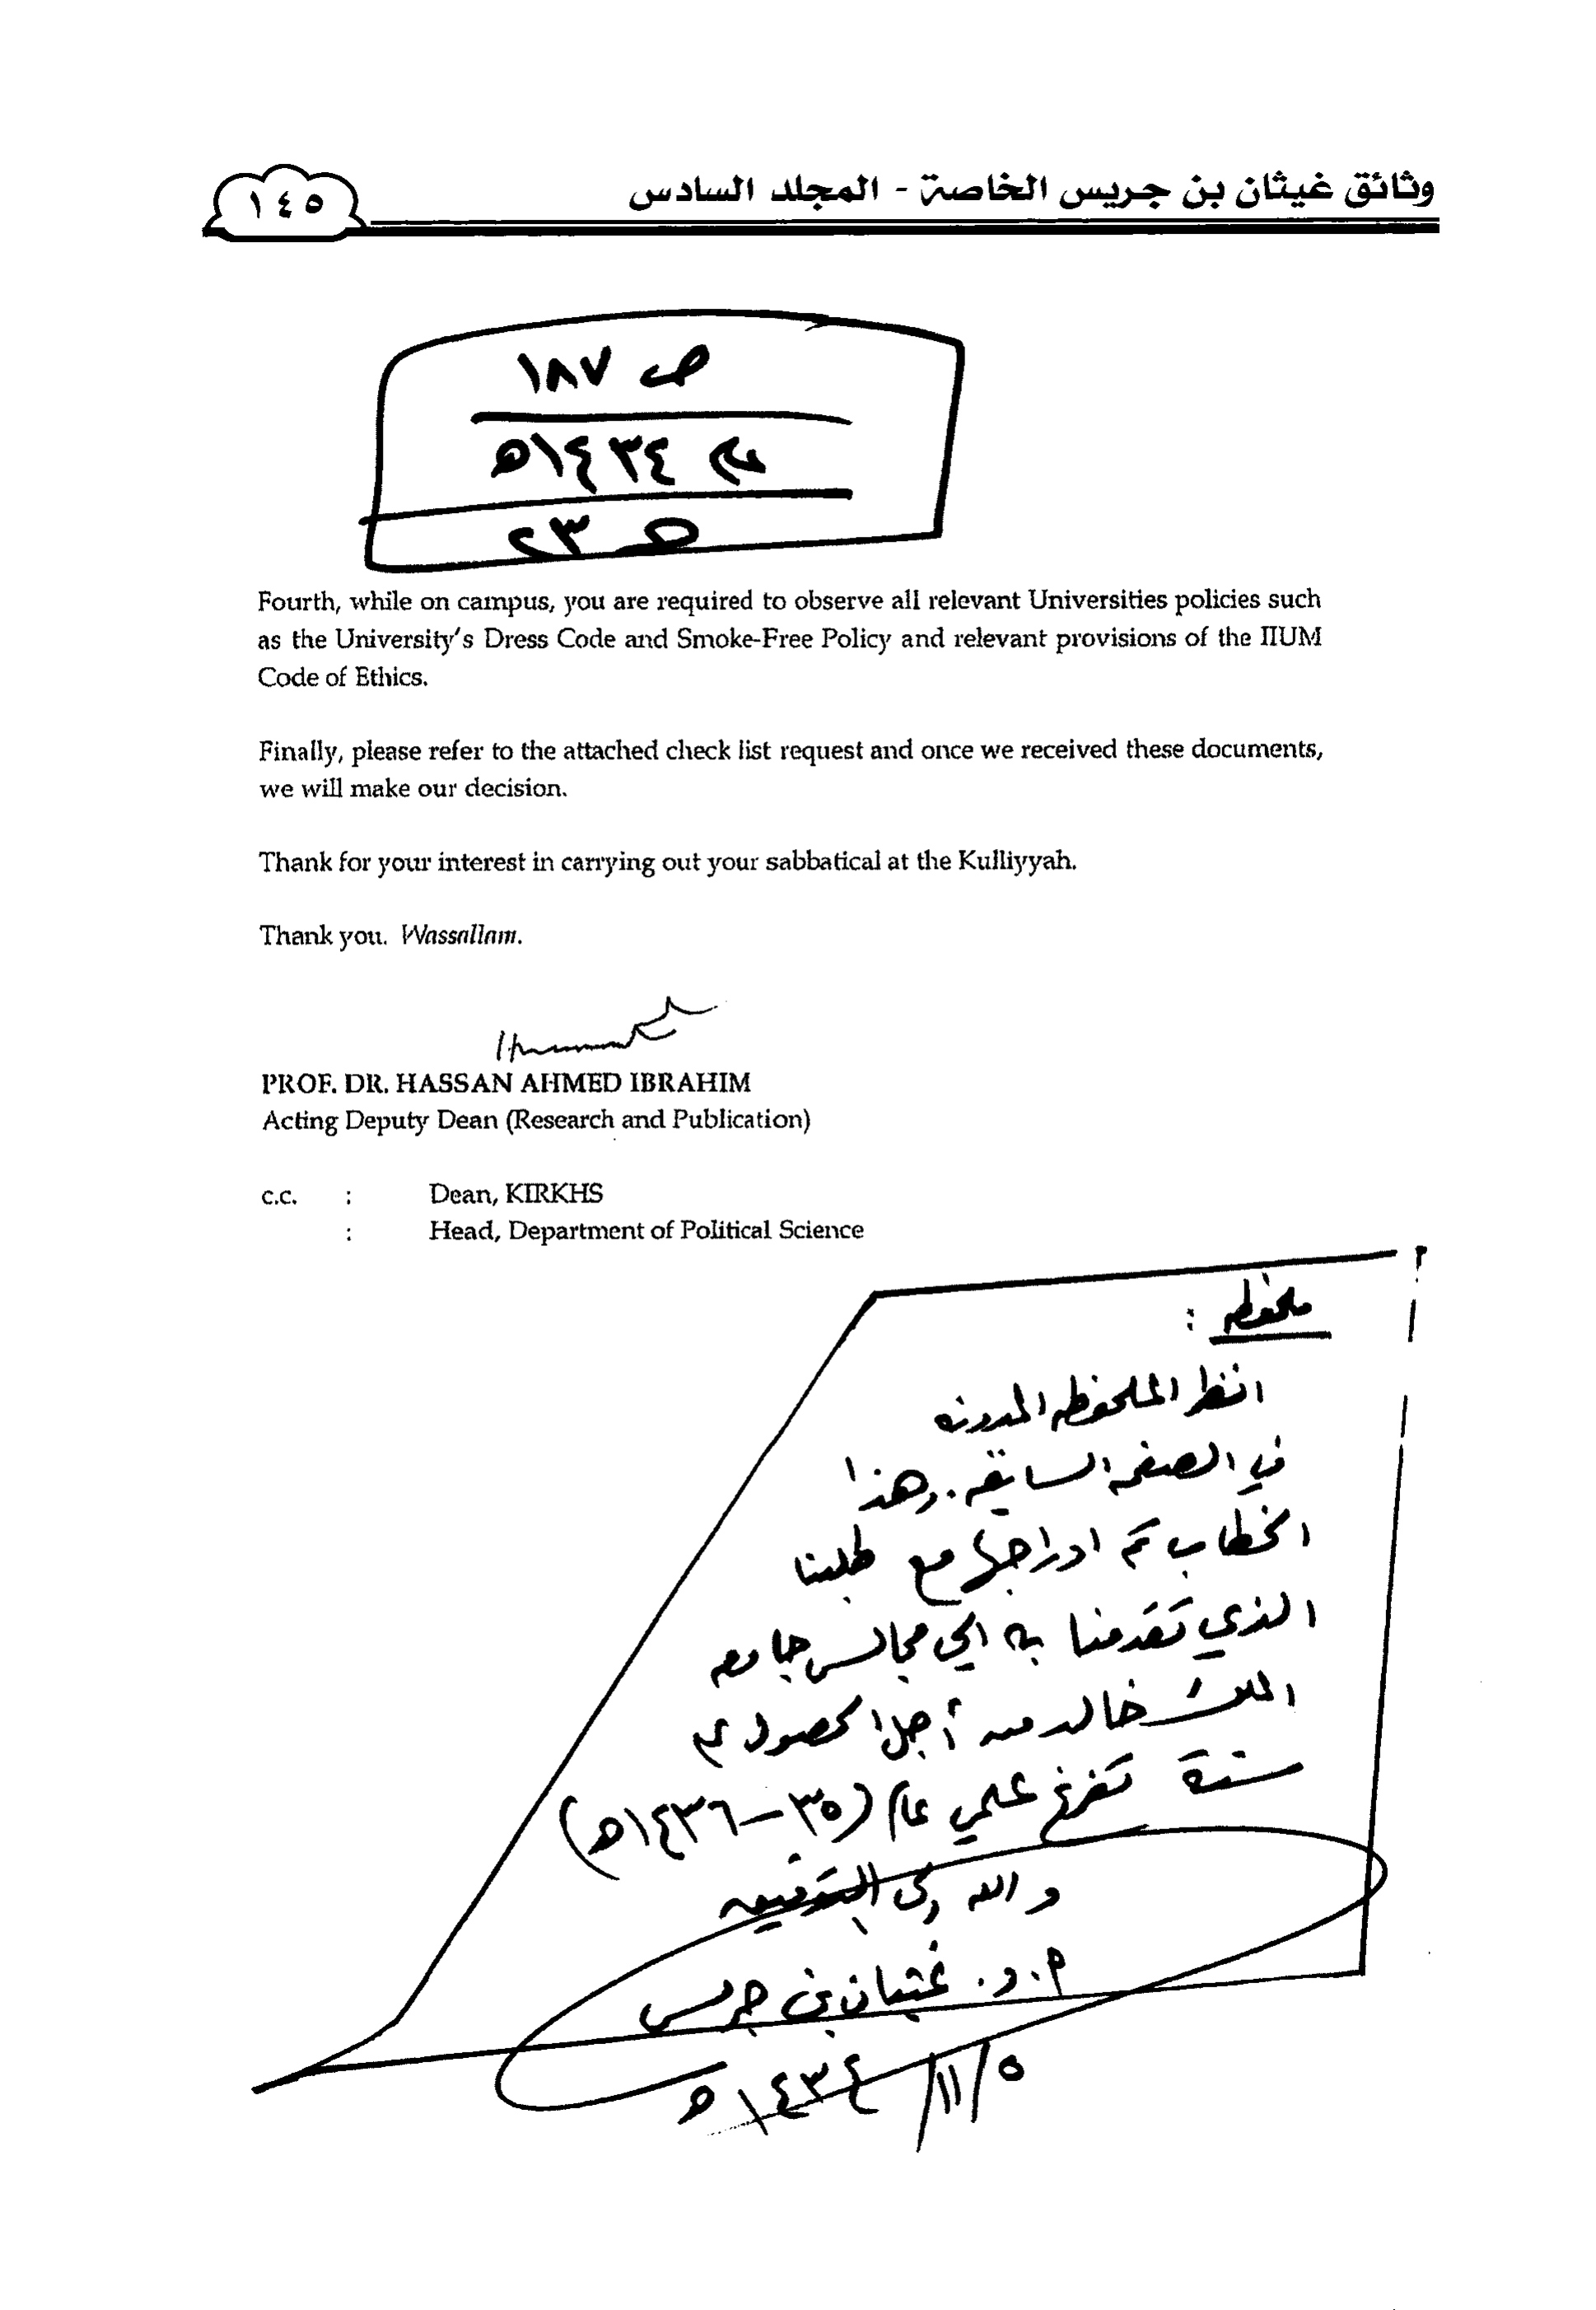 وثائق غيثان بن جريس الخاصة - المجلد السادس
١٤٥
ص ١٨٧
١٤٣٤هـ
ص ٢٣
Fourth, while on campus, you are required to observe all relevant Universities policies such
as the University's Dress Code and Smoke-Free Policy and relevant provisions of the IIUM
Code of Ethics.
Finally, please refer to the attached check list request and once we received these documents,
we will make our decision.
Thank for your interest in carrying out your sabbatical at the Kulliyyah.
Thank you. Wassallam.
PROF. DR. HASSAN AHMED IBRAHIM
Acting Deputy Dean (Research and Publication)
c.c. : Dean, KIRKHS
: Head, Department of Political Science
ملحوظه :
انظر الملحوظه المدونه
في الصفحه السابقه . وهذا
الخطاب تم ادراجها مع طلبنا
الذي تقدمنا به الى مجالس جامعه
الملك خالد من أجل الحصول على
سنة تفرغ علمي عام (٣٥ – ١٤٣٦هـ)
والله ولي التوفيق
أ. د. غيثان بن جريس
٥/١١/١٤٣٤هـ